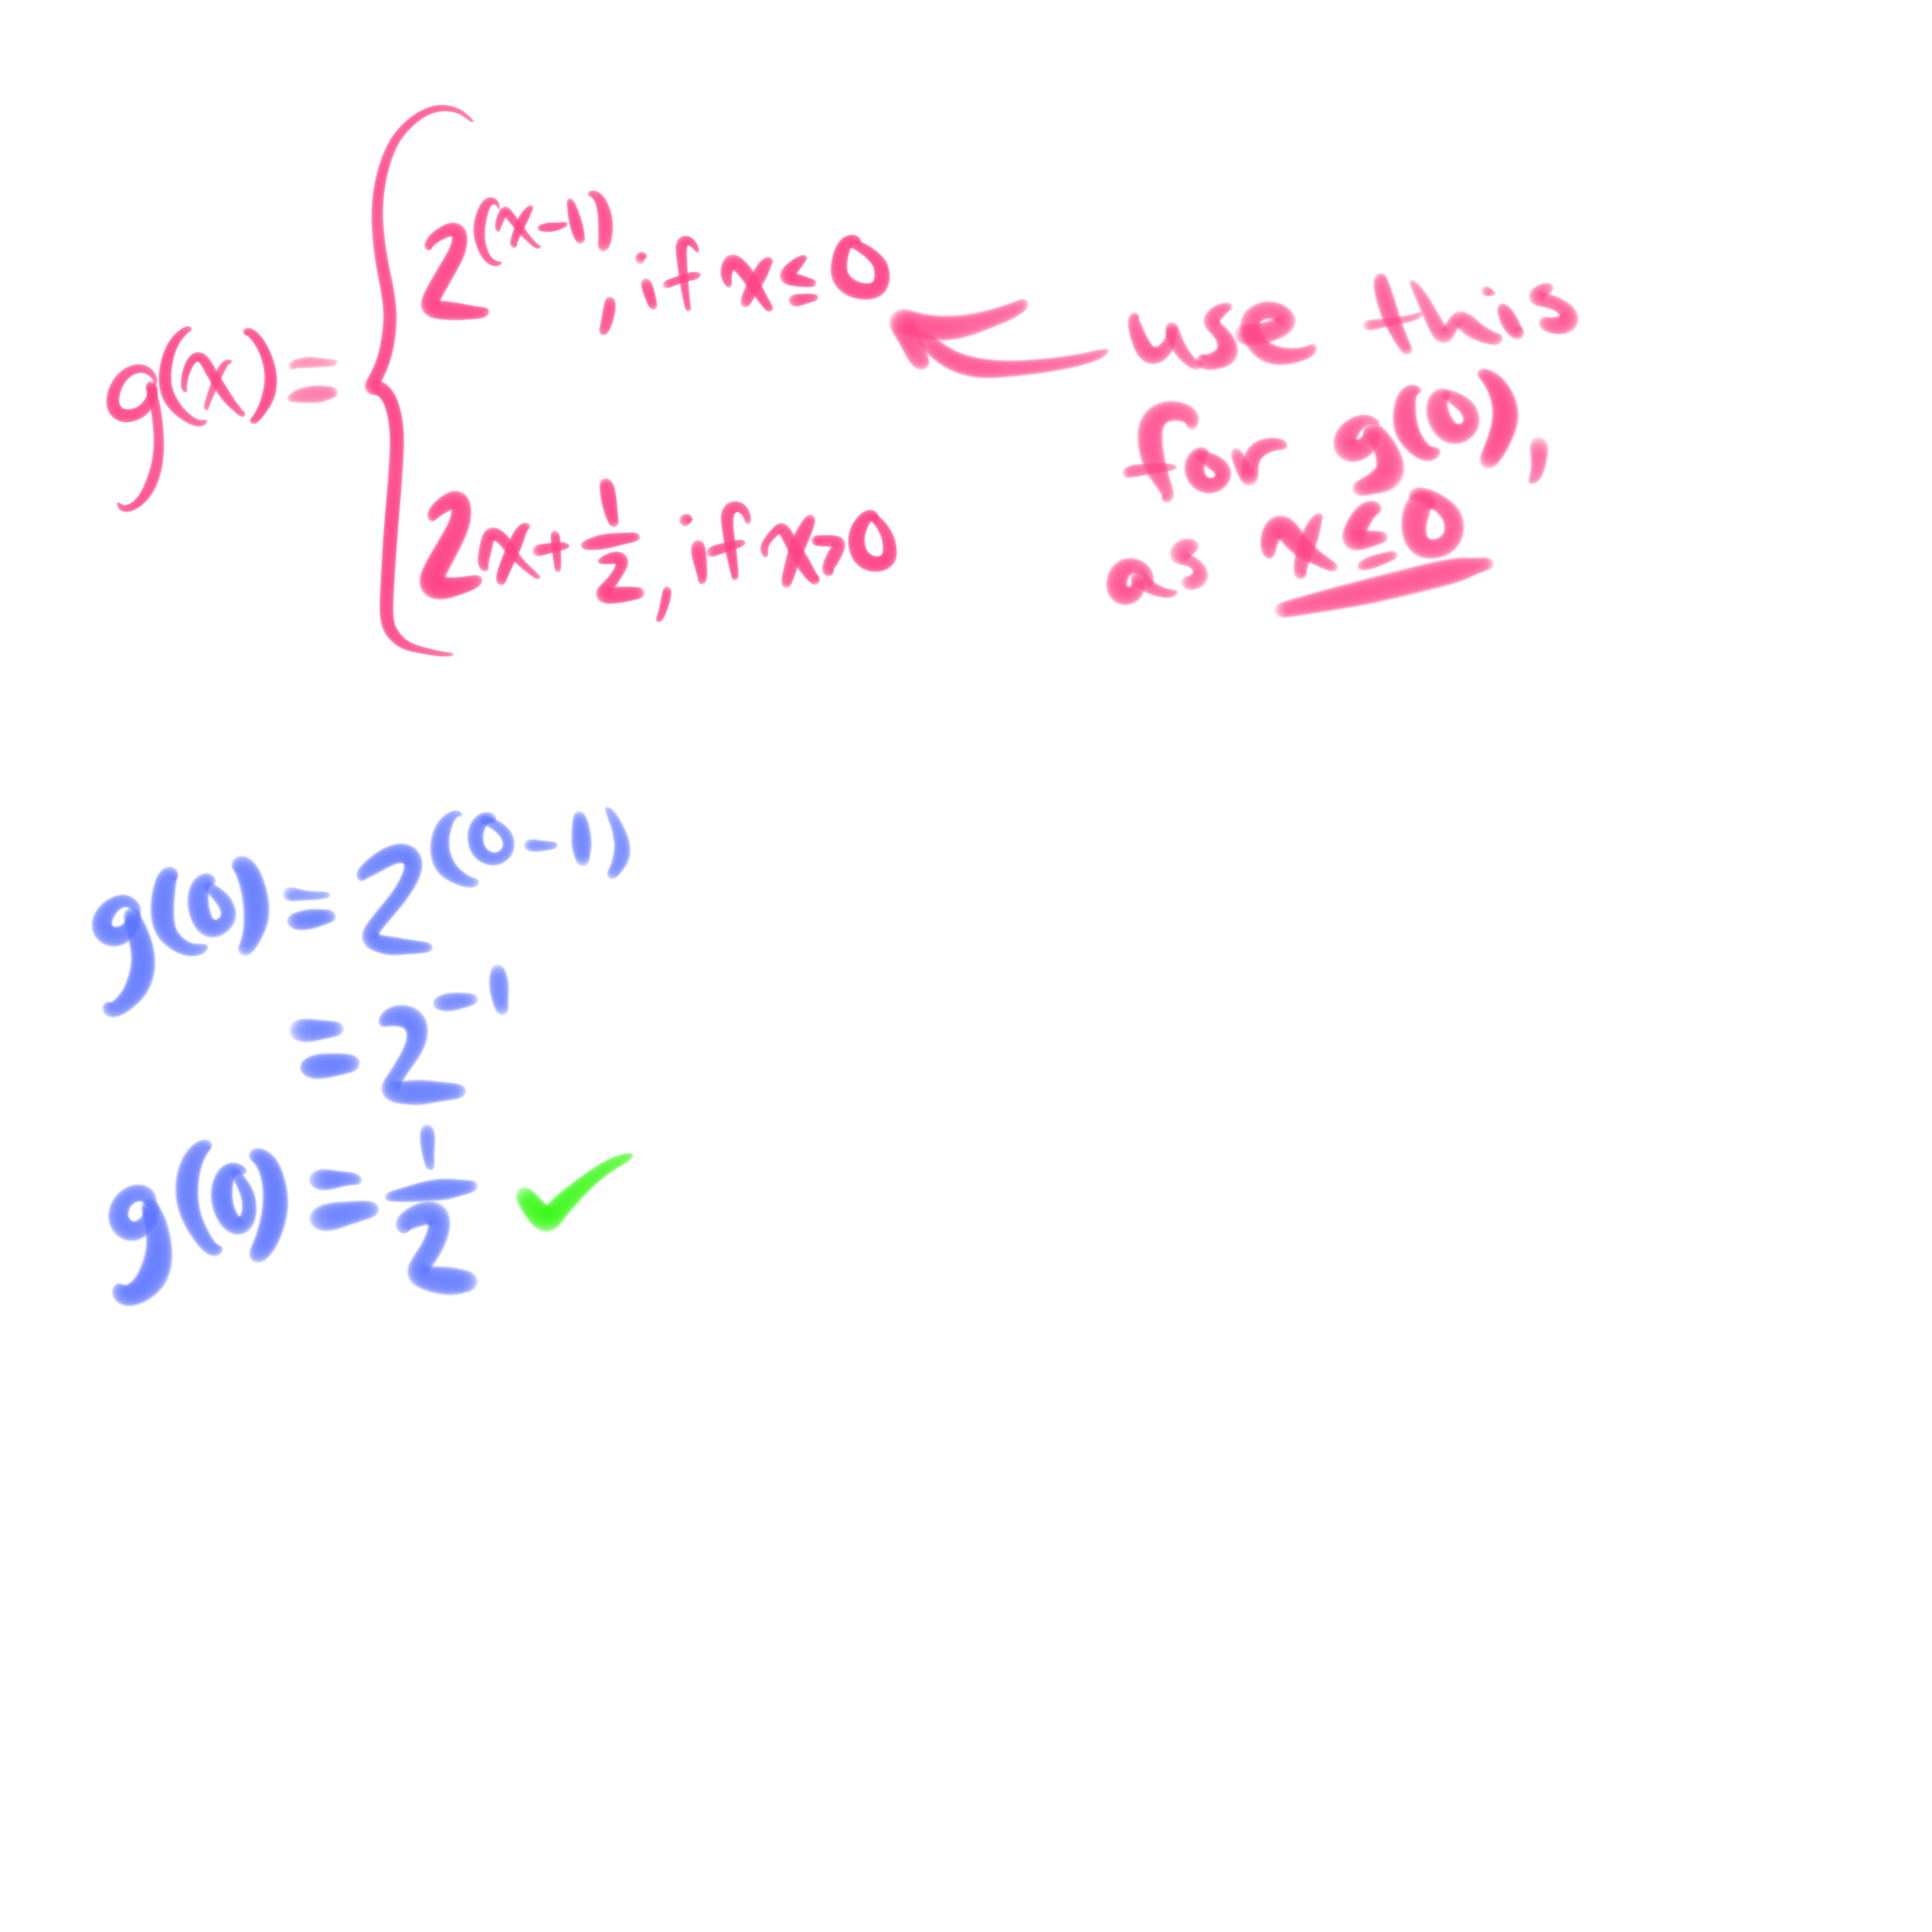 g(x) = { 2^(x-1), if x ≤ 0
2x + 1/2, if x > 0
use this
for g(0),
as x ≤ 0
g(0) = 2^(0-1)
= 2^-1
g(0) = 1/2 ✓